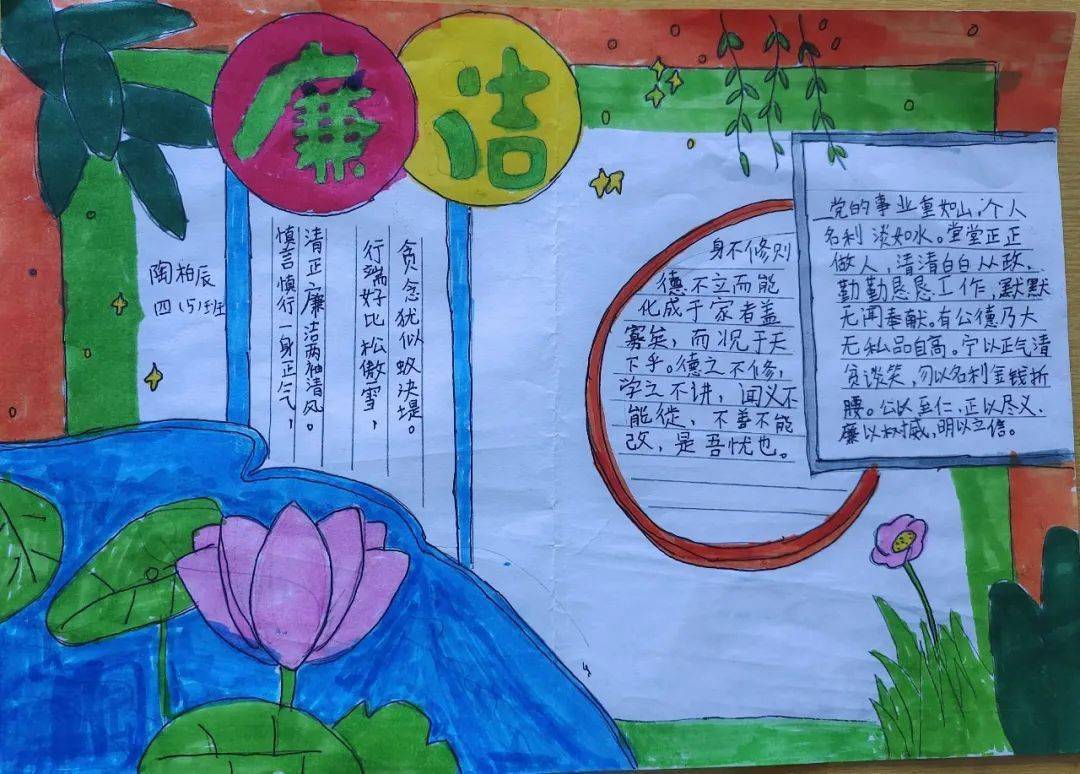 廉洁
陶柏辰
四(5)班
贪念犹似蚁决堤。
行端好比松傲雪，
清正廉洁两袖清风。
慎言慎行一身正气，
身不修则
德不立而能
化成于家者盖
寡矣，而况于天
下乎。德之不修，
学之不讲，闻义不
能徙，不善不能
改，是吾忧也。
党的事业重如山，个人
名利淡如水。堂堂正正
做人，清清白白从政，
勤勤恳恳工作，默默
无闻奉献。有公德乃大
无私品自高。宁以正气清
贫谈笑，勿以名利金钱折
腰。公以至仁，正以尽义，
廉以树威，明以立信。